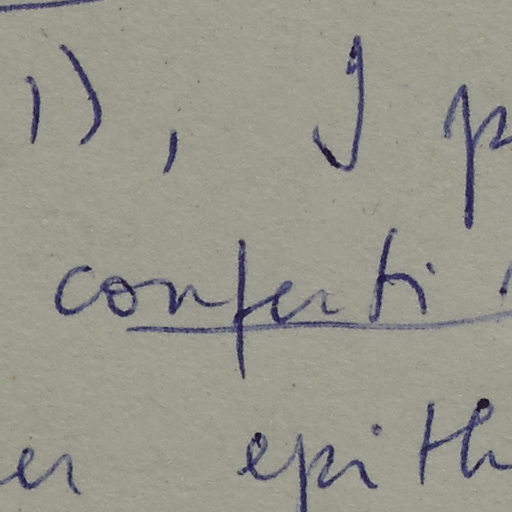 1), I p
conferti
er epith